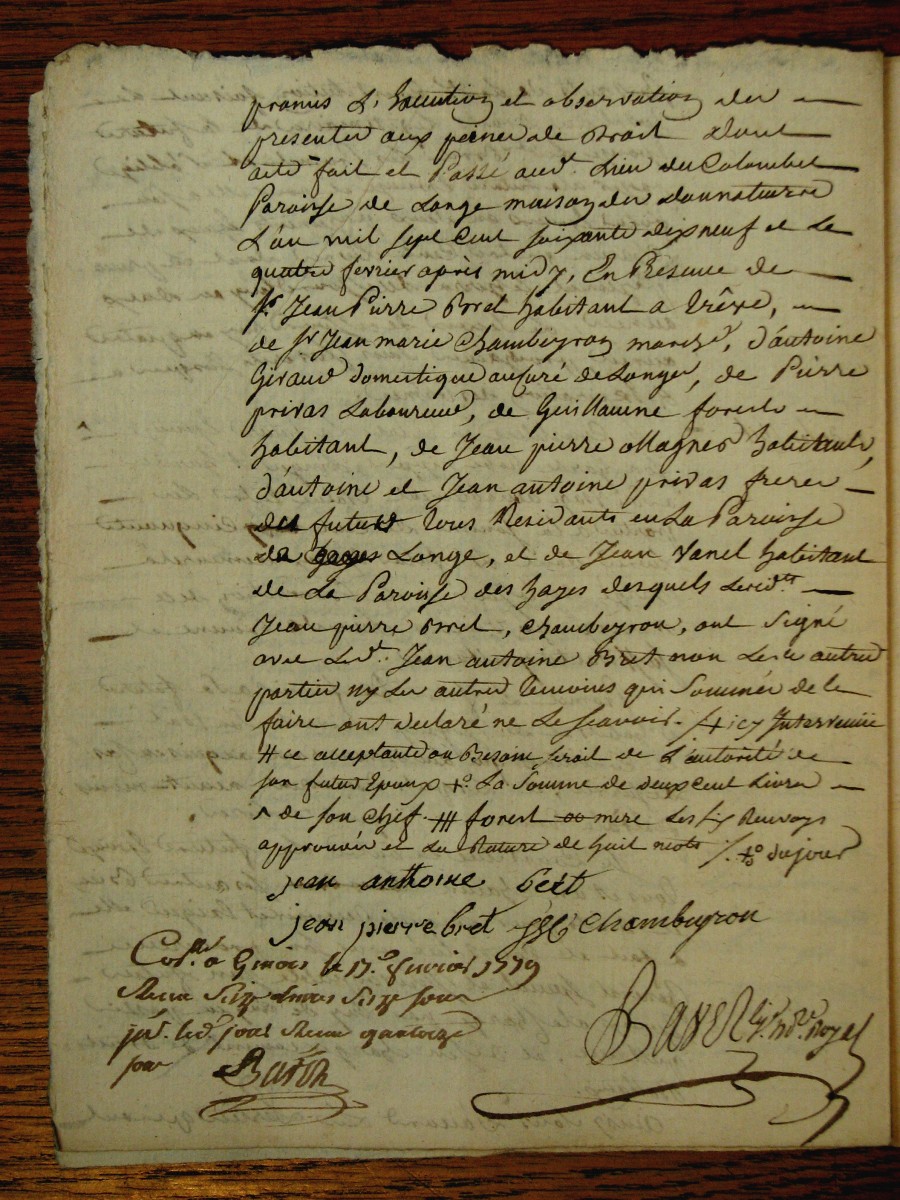 promis L'Execution et observation des
presentes aux peines de Droit Dont
acte fait et Passé aud. Lieu du Colombet
Paroisse de Longe maison des donnateurs
L'an mil sept cent soixante dix neuf et Le
quatre fevrier après midy, En Presence de
Sr. Jean Pierre Bret habitant a Trêve,
de Sr Jean marie Chambeyron march.d, d'antoine
Giraud domestique au Curé de Longe, de Pierre
privas Laboureur, de Guillaume forest
habitant, de Jean pierre Magnes habitants,
d'antoine et Jean antoine privas freres
des futurs Tous Residants en La Paroisse
de Longe, et de Jean Vanel habitant
de La Paroisse des hayes desquels Lesd.ts
Jean pierre Bret, Chambeyron, ont Signé
avec Led.t Jean antoine Bret non Les autres
parties ny Les autres temoins qui Sommés de le
faire ont declaré ne Le scavoir. /+ icy Intervenüe
# ce acceptante au Besoin serait de L'autorité de
son futur Epoux +o La Somme de deux cent Livres
^ de son Chef ### forest oo mere Les six Renvoys
approuvés et La Rature de huit mots /. +o dujour
jean anthoine bret
jean pierre bret JM Chambeyron
Con.lé a Givors le 17.e fevrier 1779
Reçu seize Livres seize sous
led. jour Reçu quatorze
sous Baron
Baver Not.re Royal